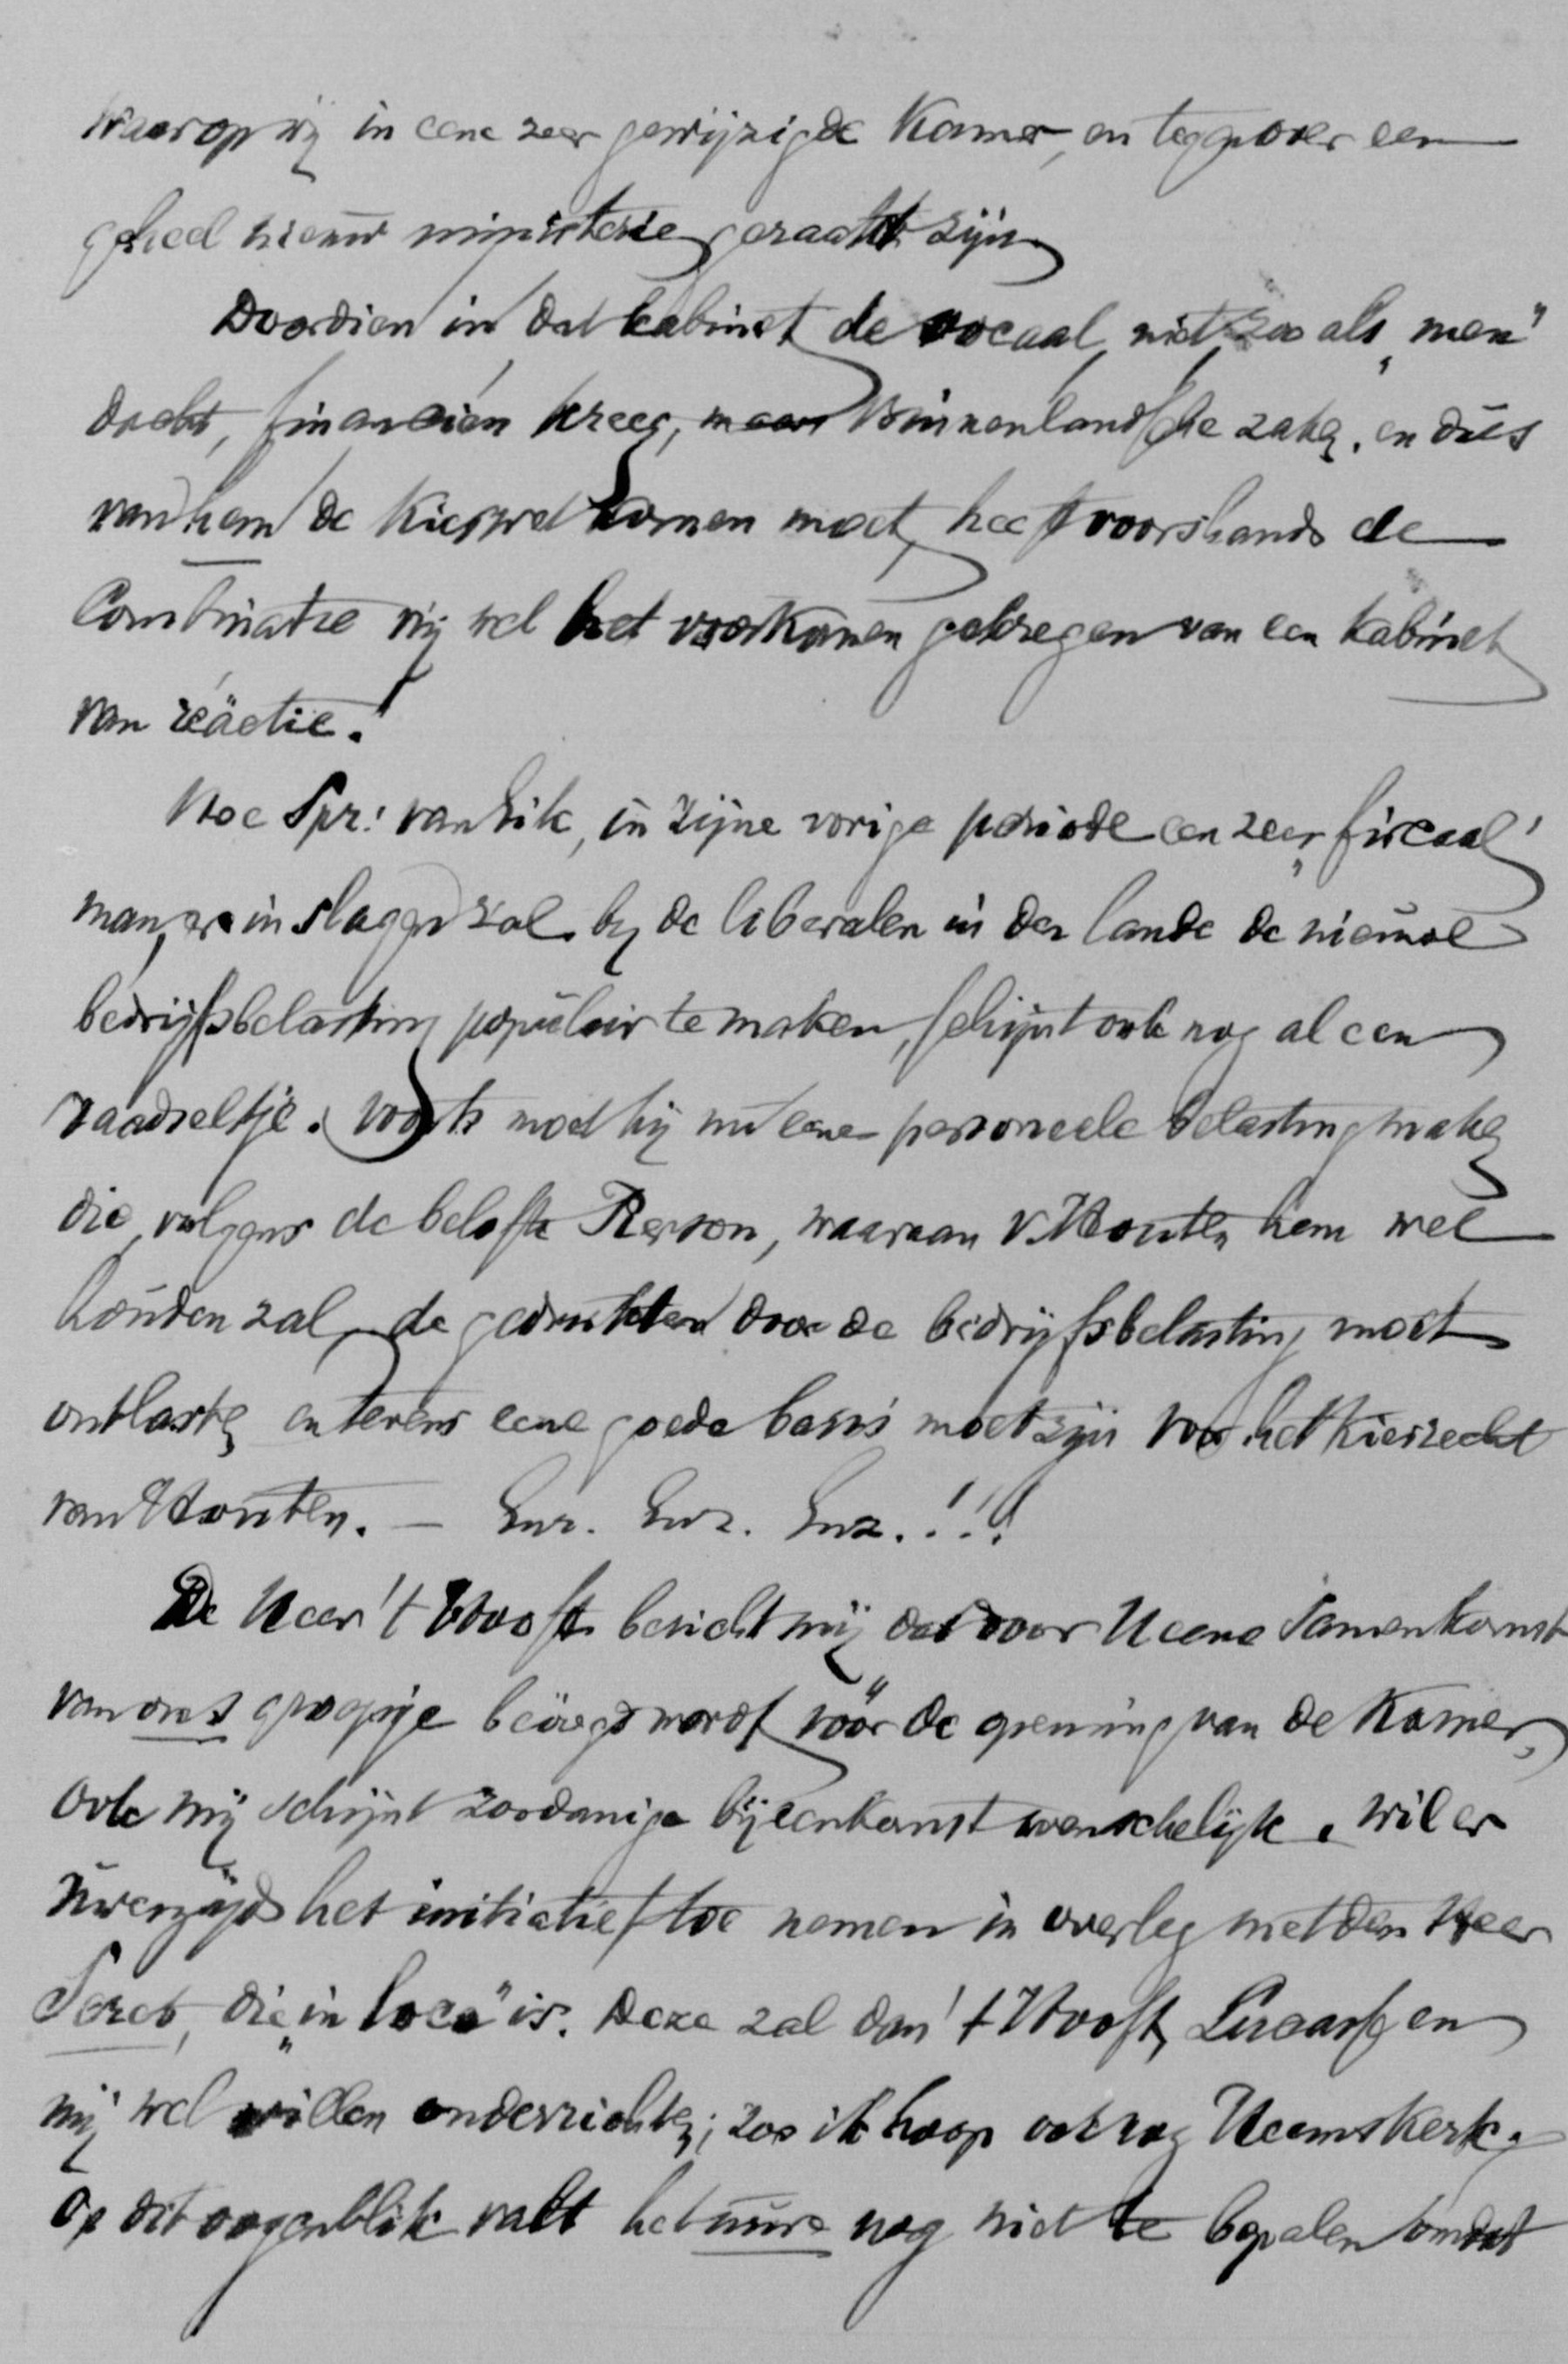 waarop wij in eene zeer gewijzigde Kamer, en tegenover een
geheel nieuw ministerie geraakt zijn.
Doordien in dat kabinet de vocaal, niet zoo als „men"
dacht, financiën kreeg, maar Binnenlandsche zaken, en dus
van hem de Kieswet komen moet, heeft voorshands de
Combinatie mij wel het voorkomen gekregen van een kabinet
van reäctie.
Hoe Spr: van Eik, in zijne vorige periode een zeer „fiscaal"
man, er in slagen zal bij de liberalen in den lande de nieuwe
bedrijfsbelasting populair te maken, schijnt ook nog al een
raadseltje. Voorts moet hij nu eene personeele belasting maken
die, volgens de belofte Pierson, waaraan v. Houten hem wel
houden zal, de gedrukten door de bedrijfsbelasting moet
ontlasten, en tevens eene goede basis moet zijn voor het Kiesrecht
van Houten. — Enz. Enz. Enz.!!!
De Heer 't Hooft bericht mij dat door U eene Samenkomst
van ons groepje beoogd wordt vóór de opening van de Kamer,
ook mij schijnt zoodanige bijeenkomst wenschelijk. Wil er
Uwerzijds het initiatief toe nemen in overleg met den Heer
die „in loco" is. Deze zal dan 't Hooft, Lucasse en
mij wel willen onderrichten; zoo ik hoop ook nog Heemskerk.
Op dit oogenblik valt het uure nog niet te bepalen omdat